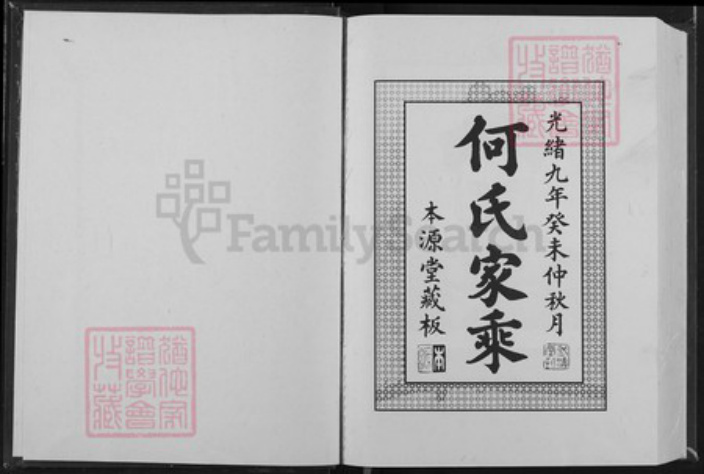 光緒九年癸未仲秋月
何氏家乘
本源堂藏板
FamilySearch